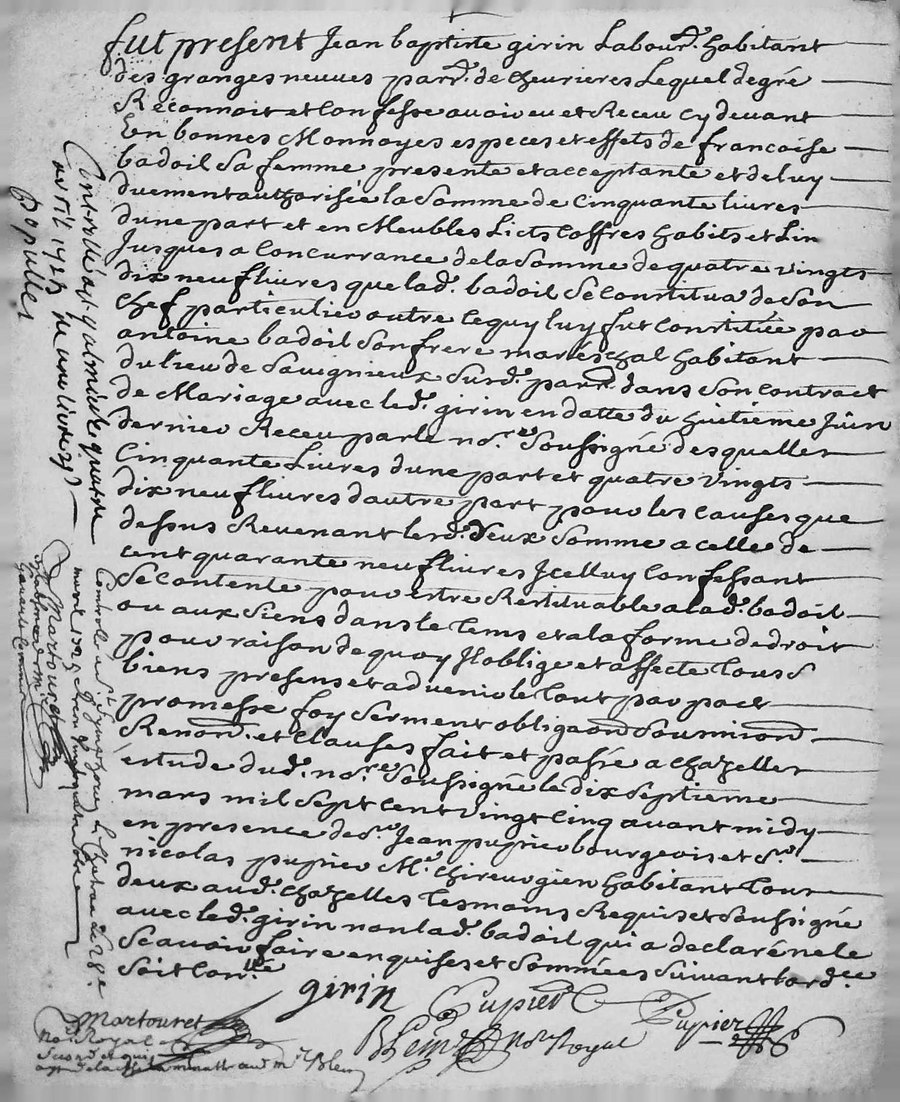 fut present Jean baptiste girin Labourr. habitant
des granges neuves parr. de cheurieres Lequel de gré
Reconnoit et Confesse avoir eu et Receu cy devant
En bonnes Monnoyes especes et effets de francoise
badoil sa femme presente et acceptante et de luy
duement authorisée la somme de Cinquante livres
dune part et en Meubles Licts Coffres habits et Lin
Jusques a concurrance de la somme de quatre vingts
dix neuf livres que lad. badoil se Constitua de son
Chef particulier outre ce quy luy fut Constituée par
antoine badoil son frere mareschal habitant
du lieu de Sauignieux susd. parr. dans son contract
de Mariage avec led. girin en datte du huitieme Juin
dernier Receu par le nore. soussigné desquelles
Cinquante Livres dune part et quatre vingts
dix neuf livres dautre part pour les causes que
dessus Revenant lesd. deux somme a celle de
cent quarante neuf livres Jcelluy Confessant
se contente pour estre Restituable a lad. badoil
ou aux siens dans le tems et a la forme de droit
pour raison de quoy Jl oblige et affecte tous s
biens presens et advenir le tout par pact
promesse foy serment obligaon soumion
Renon. et Clauses fait et passé a chazelles
estude dud. nore. soussigné le dix septieme
mars mil sept cent vingt cinq avant midy
en presence de sr Jean pupier bourgeois et sr.
nicolas pupier Me. chirurgien habitant tous
deux aud. chazelles tesmoins Requis et soussigné
avec led. girin non lad. badoil qui a declaré ne le
scavoir faire enquises et sommées suivant lordce
soit Conllé
girin Pupier Pupier
Martouret
nore Royal
BLein nore Royal
Second acquis
Controllé a st
quatre
avril 1725
populles
Controllé a
le 28e
mars 1725
Martouret